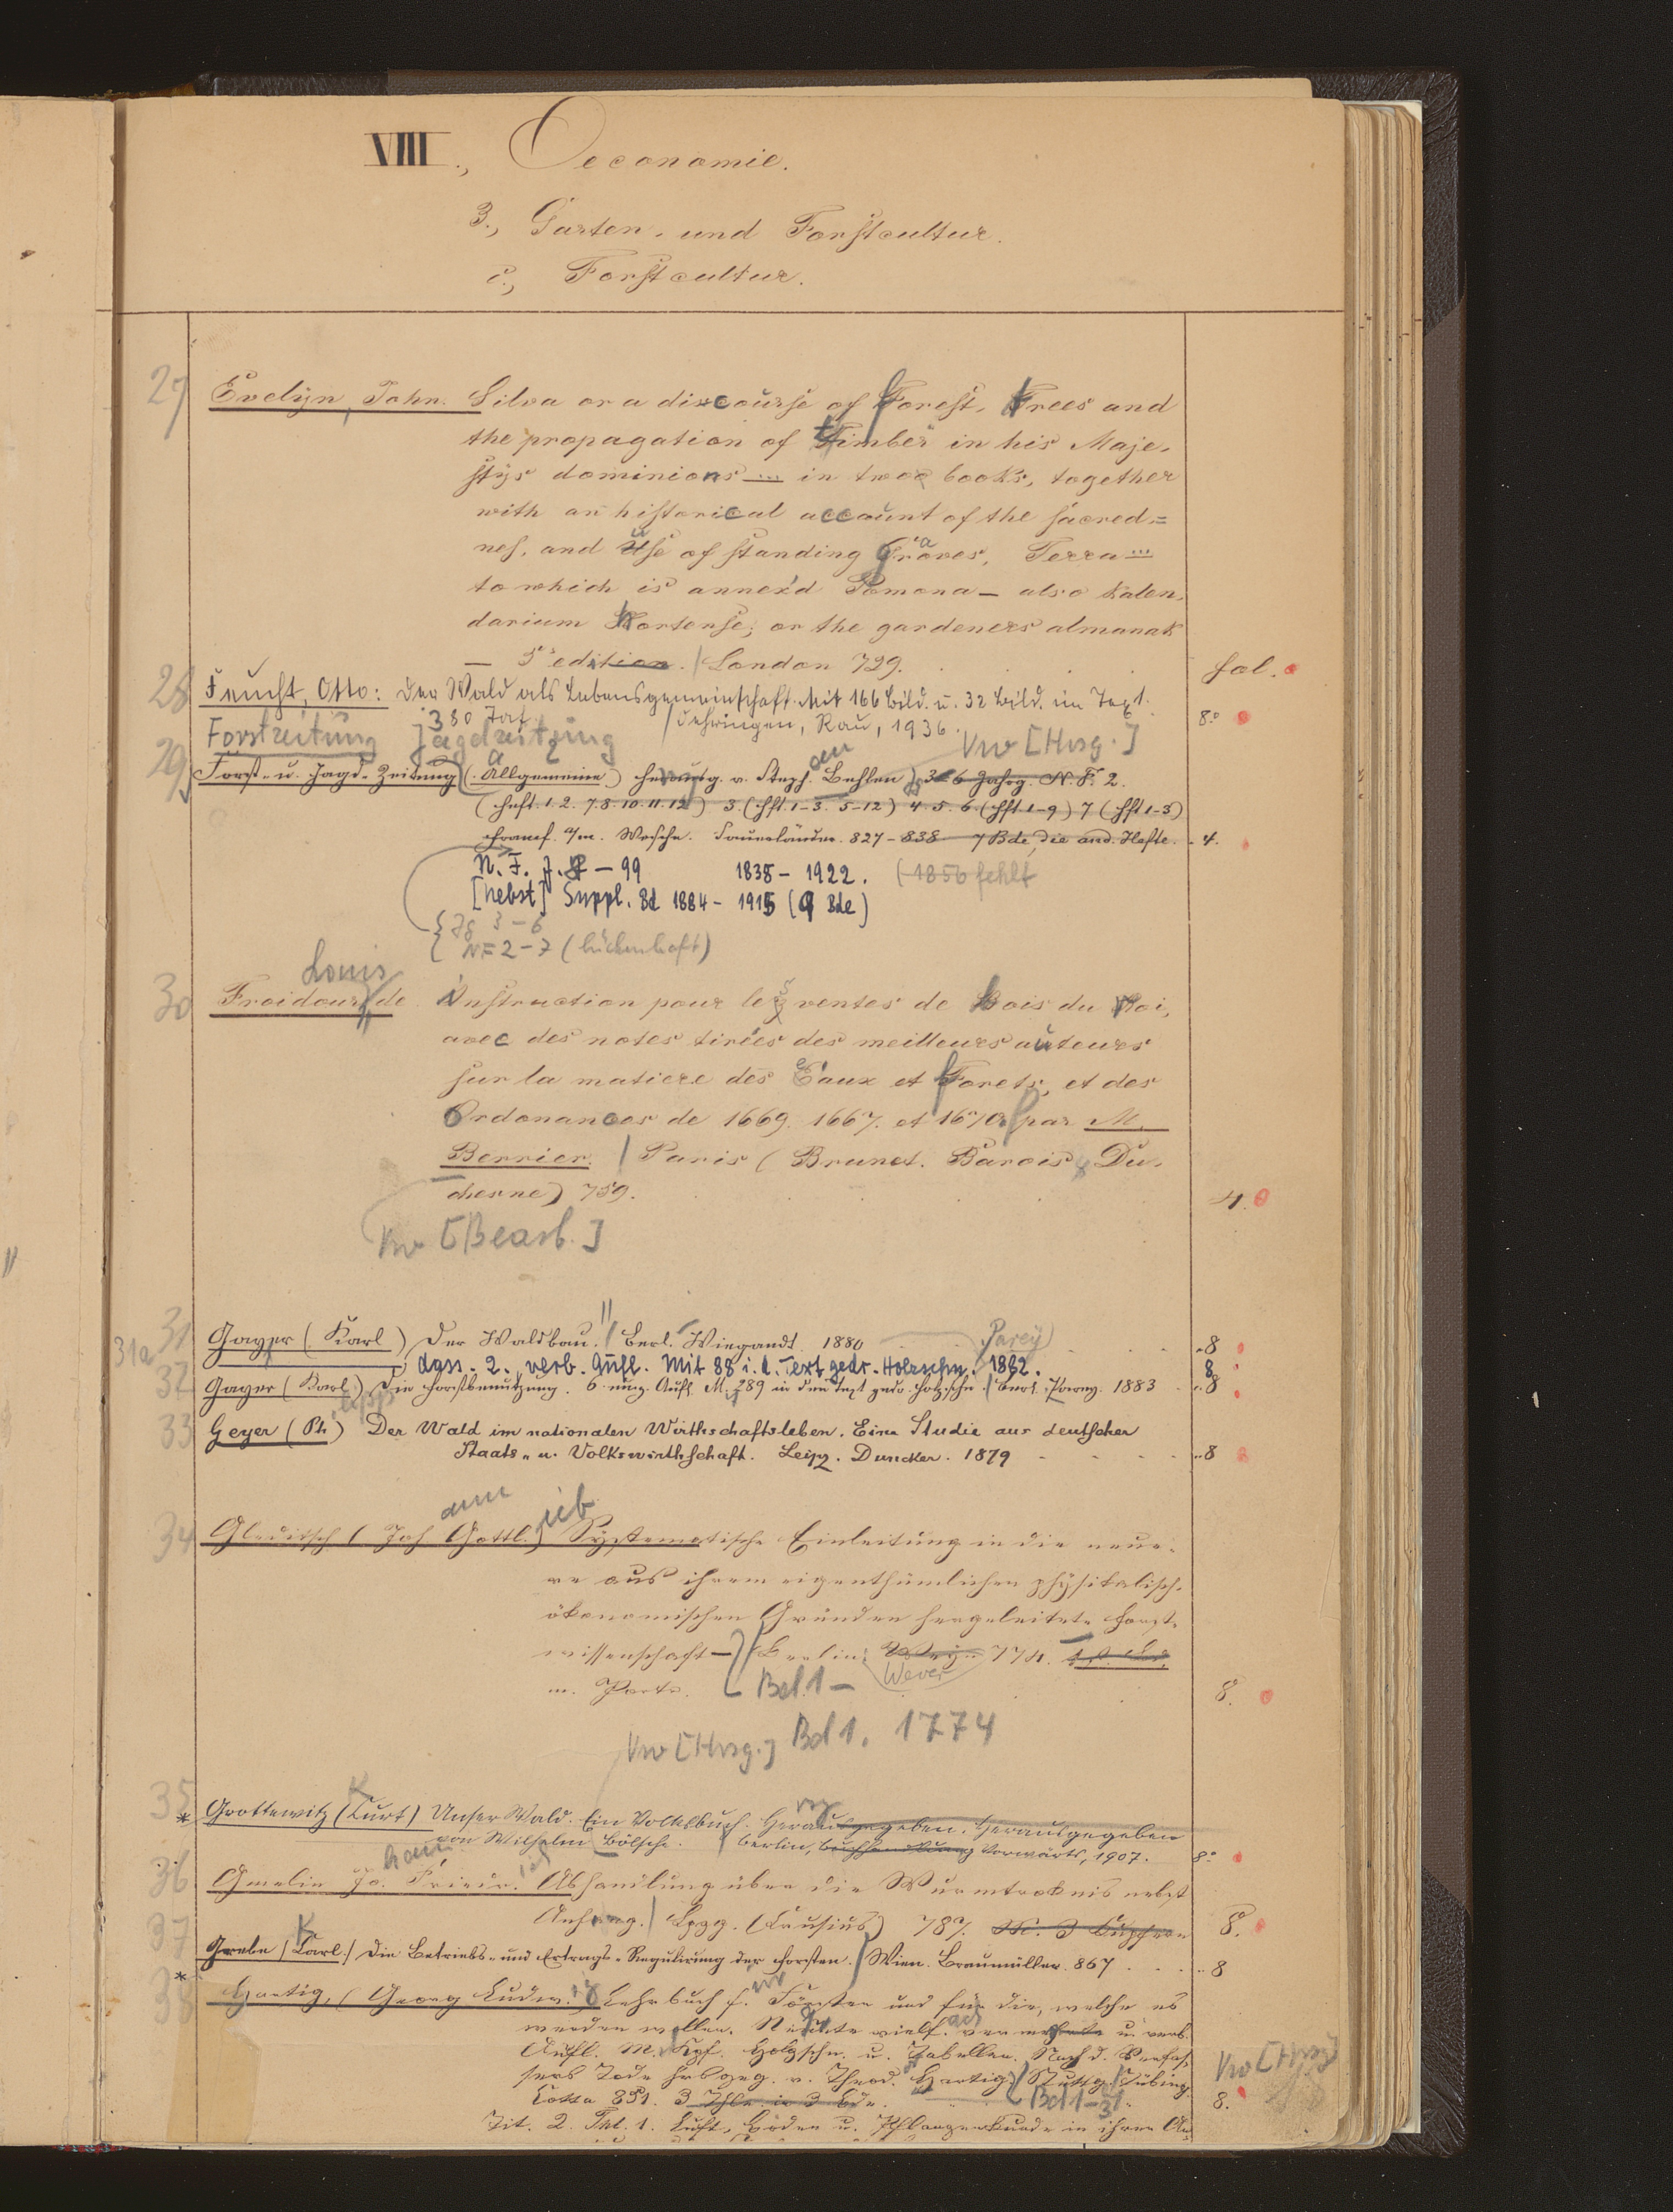 VIII., Oeconomie.
3., Garten- und Forstcultur.
c., Forstcultur.
27 Evelyn, John. Silva or a discourse of Forest, Trees and
the propagation of Timber in his Maje-
stys dominions ... in two books, together
with an historical account of the sacred=
nes, and Use of standing Groves, Terra ...
to which is annex'd Pomona – also Kalen-
darium Hortense; or the gardeners almanak
— 5 edition. / London 729. fol.
28 Feucht, Otto: Der Wald als Lebensgemeinschaft. Mit 166 Bild. u. 32 Bild. im Text.
380 Taf. / Oehringen, Rau, 1936. 8°
Forstzeitung Jagdzeitung Vw [Hrsg.]
29 Forst- u. Jagd-Zeitung (Allgemeine) herausg. v. Steph. Behlen 3–6 Jahrg. N. F. 2.
(Heft. 1. 2. 7. 8. 10. 11. 12) 3. (Hft 1–3. 5–12) 4. 5. 6. (Hft 1–9) 7 (Hft 1–3)
Francf. a/m. Wesche. Sauerländer. 827–838 7 Bde, die and. Hefte. 4.
N. F. J. 8 – 99 1838 – 1922. (1856 fehlt
[Nebst] Suppl. Bd 1884 – 1915 (9 Bde)
{ Jg 3–6
{ NF 2–7 (lückenhaft)
Louis
30 Froidour, de Instruction pour les ventes de Bois du Roi,
avec des notes tirées des meilleurs auteurs
sur la matiere des Eaux et Forets, et des
Ordonances de 1669. 1667. et 1670 par M.
Berrier. / Paris (Brunet. Barois & Du-
chesne) 759. 4.
Vw [Bearb.]
31 Gayer (Karl) Der Waldbau. / Berl. Wiegandt. 1880 Parey) 8
31a —, dass. 2., verb. Aufl. Mit 88 i. d. Text gedr. Holzschn. 1882. 8
32 Gayer (Karl) Die Forstbenutzung. 6. umg. Aufl. M. 289 in den Text gedr. Holzschn. / Berl. Parey. 1883 8
33 Geyer (Ph) Der Wald im nationalen Wirthschaftsleben. Eine Studie aus deutscher
Staats- u. Volkswirthschaft. Leipz. Duncker. 1879 8
ann ieb
34 Gleditsch (Joh Gottl.) Systematische Einleitung in die neue-
re aus ihrem eigenthümlichen physikalisch-
ökonomischen Gründen hergeleitete Forst-
wissenschaft – / Berlin 774.
Wever
m. Portr. Bd. 1 – 8.
Vw [Hrsg.] Bd 1. 1774
35 * Grottewitz (Curt) Unser Wald. Ein Volksbuch. Herausgegeben. Herausgegeben
von Wilhelm Bölsche. Berlin, Buchhandlung Vorwärts, 1907. 8°
36 Gmelin Jo. Friedr. Abhandlung über die Wurmtroknis nebst
Anhang. / Lpzg. (Crusius) 787. M. 3 Kupfern 8.
37 Grebe (Carl) Die Betriebs- und Ertrags-Regulirung der Forsten. / Wien. Braumüller. 867 8
38 * Hartig, (Georg Ludw.) Lehrbuch f. Förster und für die, welche es
werden wollen. Neunte vielf. vermehrte u. verb.
Aufl. M. Kpf. Holzschn. u. Tabellen. Nach d. Verfas-
sers Tode hrsgeg. v. Theod. Hartig. / Stuttg. / Tübing. Vw [Hrsg]
Cotta 851. 3 Thle. in 3 Bdn. Bd 1–3 8.
Tit. 2. Thl. 1. Luft-, Boden u. Pflanzenkunde in ihrer An-